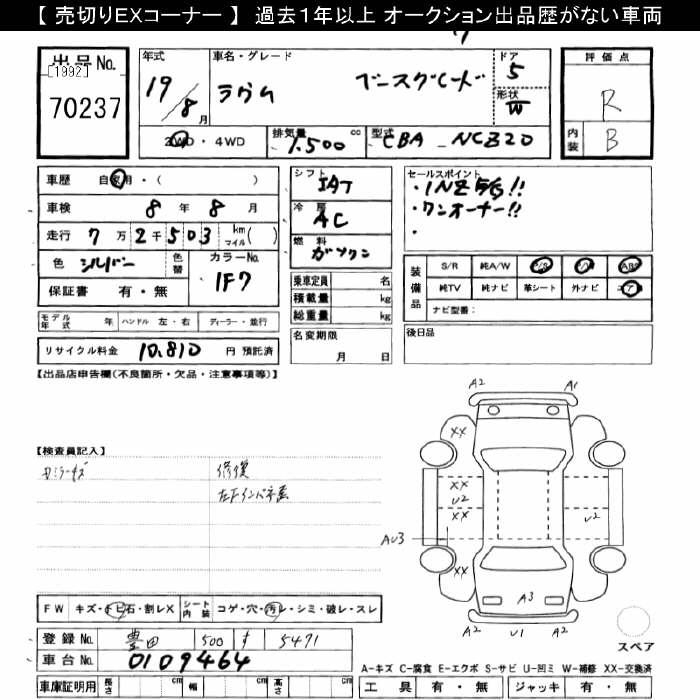 【 売切りEXコーナー 】 過去1年以上 オークション出品歴がない車両
出品No.
[1992]
70237
年式
19/8月
車名・グレード
ラウム
ドア
5
形状
W
2WD・4WD
排気量
1.500 cc
型式
CBA_NCZ20
評価点
R
内装
B
車歴 自家用・( )
車検 8年8月
走行 7万2千503 km マイル( )
色 シルバー 色替
カラーNo.
1F7
保証書 有・無
シフト
IAT
冷房
AC
燃料
ガソリン
乗車定員 名
積載量 kg
総重量 kg
名変期限
月 日
セールスポイント
・1NZ
・ワンオーナー!!
・
装備品
S/R 純A/W P/S P/W ABS
純TV 純ナビ 革シート 外ナビ エアB
ナビ型番:
後日品
モデル年式 年 ハンドル 左・右 ディーラー・並行
リサイクル料金 10.810 円 預託済
【出品店申告欄(不良箇所・欠品・注意事項等)】
【検査員記入】
修復
FW キズ・トビ石・割レX シート内装 コゲ・穴・汚レ・シミ・破レ・スレ
登録No. 豊田 500 す 5471
車台No. 0109464
車庫証明用 長さ cm 幅 cm 高さ cm
A2 A1
XX
XX
U2
XX
U2
AU3
XX
A3
A2 U1 A2
スペア
A-キズ C-腐食 E-エクボ S-サビ U-凹ミ W-補修 XX-交換済
工具 有・無 ジャッキ 有・無